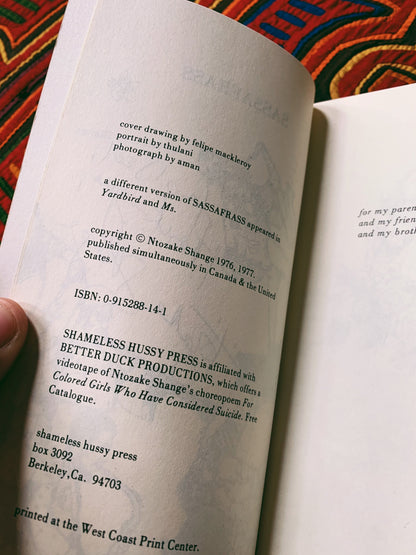 cover drawing by felipe mackleroy
portrait by thulani
photograph by aman
a different version of SASSAFRASS appeared in
Yardbird and Ms.
copyright © Ntozake Shange 1976, 1977.
published simultaneously in Canada & the United
States.
ISBN: 0-915288-14-1
SHAMELESS HUSSY PRESS is affiliated with
BETTER DUCK PRODUCTIONS, which offers a
videotape of Ntozake Shange's choreopoem For
Colored Girls Who Have Considered Suicide. Free
Catalogue.
shameless hussy press
box 3092
Berkeley,Ca. 94703
printed at the West Coast Print Center.
for my paren
and my frien
and my broth